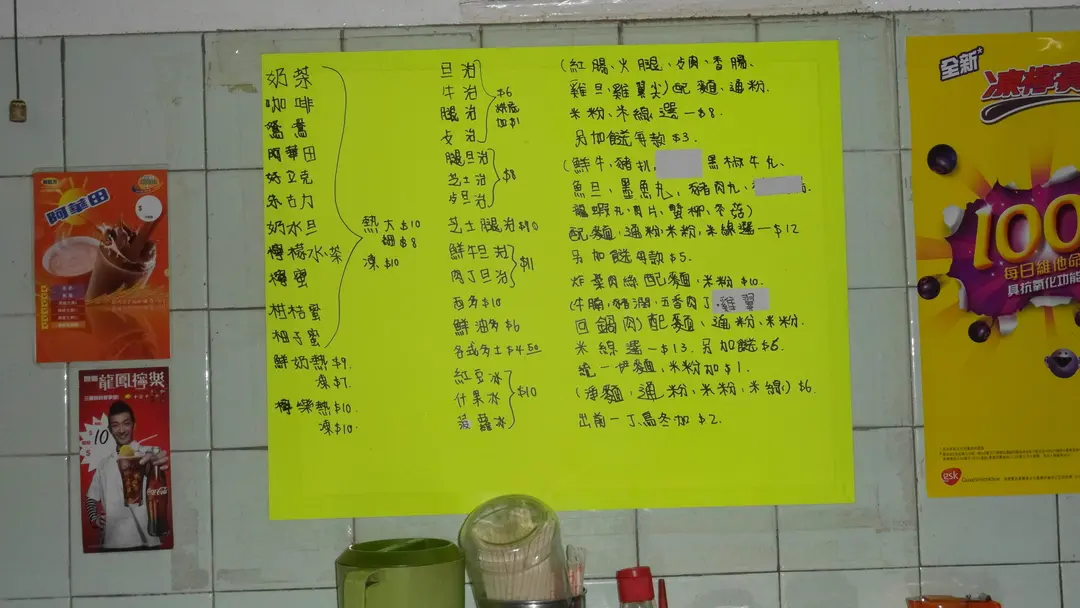 奶茶
咖啡
鴛鴦
阿華田
好立克
朱古力
奶水旦
檸檬水、茶
檸蜜
柑桔蜜
柚子蜜
熱 大 $10
細 $8
凍 $10
鮮奶熱 $9.
凍 $7.
檸樂熱 $10.
凍 $10.
旦治
牛治
腿治
$6
烘底
加$1
腿旦治
芝士治
$8
芝士腿治 $10
鮮牛旦治
肉丁旦治
$11
西多 $10
鮮油多 $6
各式多士 $4.50
紅豆冰
什果冰
菠蘿冰
$10
(紅腸、火腿、皮肉、香腸、
雞旦、雞翼尖) 配麵、通粉、
米粉、米線選一 $8.
另加餸每款 $3.
(鮮牛、豬扒、
黑椒牛丸、
魚旦、墨魚丸、豬肉丸、
龍蝦丸、肉片、蟹柳、冬菇)
配麵、通粉、米粉、米線選一 $12
另加餸每款 $5.
炸菜肉絲配麵、米粉 $10.
(牛腩、豬潤、五香肉丁、雞翼
回鍋肉) 配麵、通粉、米粉、
米線選一 $13. 另加餸 $6.
轉一伊麵、米粉加 $1.
(淨麵、通粉、米粉、米線) $6.
出前一丁、烏冬加 $2.
阿華田
龍鳳檸樂
10
全新
100
每日維他命
具抗氧化功能
gsk
GlaxoSmithKline